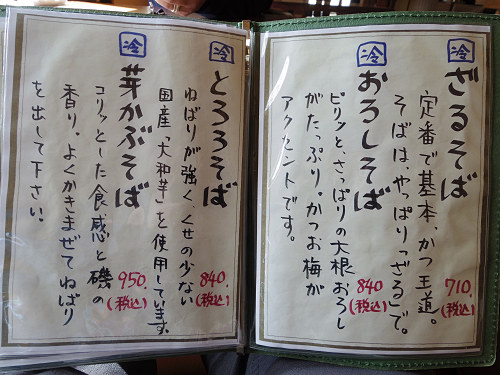 冷
ざるそば
定番で基本、かつ王道。
そばは、やっぱり「ざる」で。
710.
(税込)
冷
おろしそば
ピリッと、さっぱりの大根おろし
がたっぷり。かつお梅が
アクセントです。
840
(税込)
冷
とろろそば
ねばりが強く、くせの少ない
国産「大和芋」を使用しています。
840.
(税込)
冷
芽かぶそば
コリッとした食感と磯の
香り。よくかきまぜてねばり
を出して下さい。
950.
(税込)